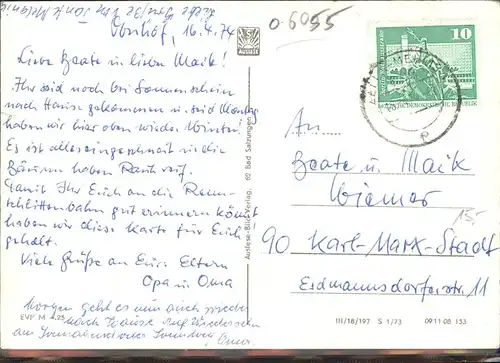 Oberhof, 16.4.74
Liebe Beate u. lieber Maik!
Ihr seid noch bei Sonnenschein
nach Hause gekommen u. seid Montag
haben wir hier oben wieder Winter.
Es ist alles eingeschneit u. die
Bäume haben Rauhreif.
Damit Ihr Euch an die Renn-
schlittenbahn gut erinnern könnt
haben wir diese Karte für Euch
gehalt.
Viele Grüße an Eure Eltern
Opa u. Oma
Morgen geht es nun auch wieder
nach Hause. Auf Wiedersehn
am Sonnabend oder Sonntag Oma.
EVP M 0,25
Auslese-Bild-Verlag, 62 Bad Salzungen
0-6055
10
DEUTSCHE DEMOKRATISCHE REPUBLIK
An
Beate u. Maik
Wiemer
90 Karl-Marx-Stadt
Erdmannsdorferstr. 11
15.-
III/18/197 S 1/73 09 11 08 133